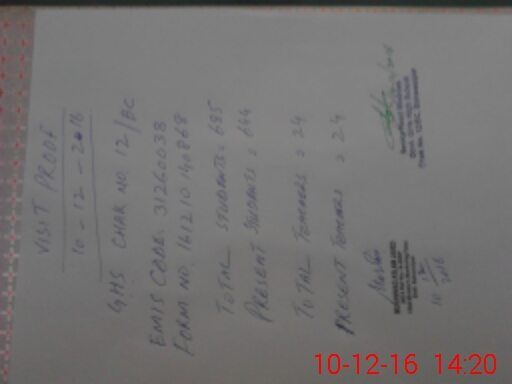 VISIT PROOF
10-12-2016
GHS CHAK NO. 12/BC
EMIS CODE. 31260038
FORM NO. 161210140868
TOTAL STUDENTS = 685
PRESENT STUDENTS = 644
TOTAL TEACHERS = 24
PRESENT TEACHERS = 24
10-12-16 14:20